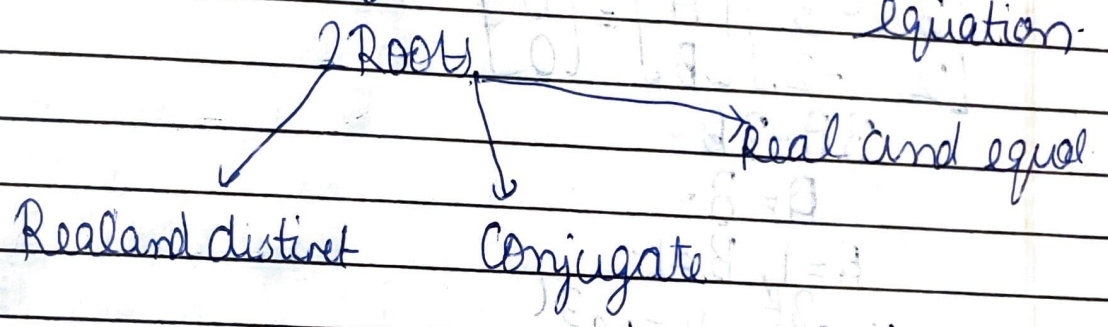 equation.
2 Roots
Real and equal
Real and distinct
Conjugate